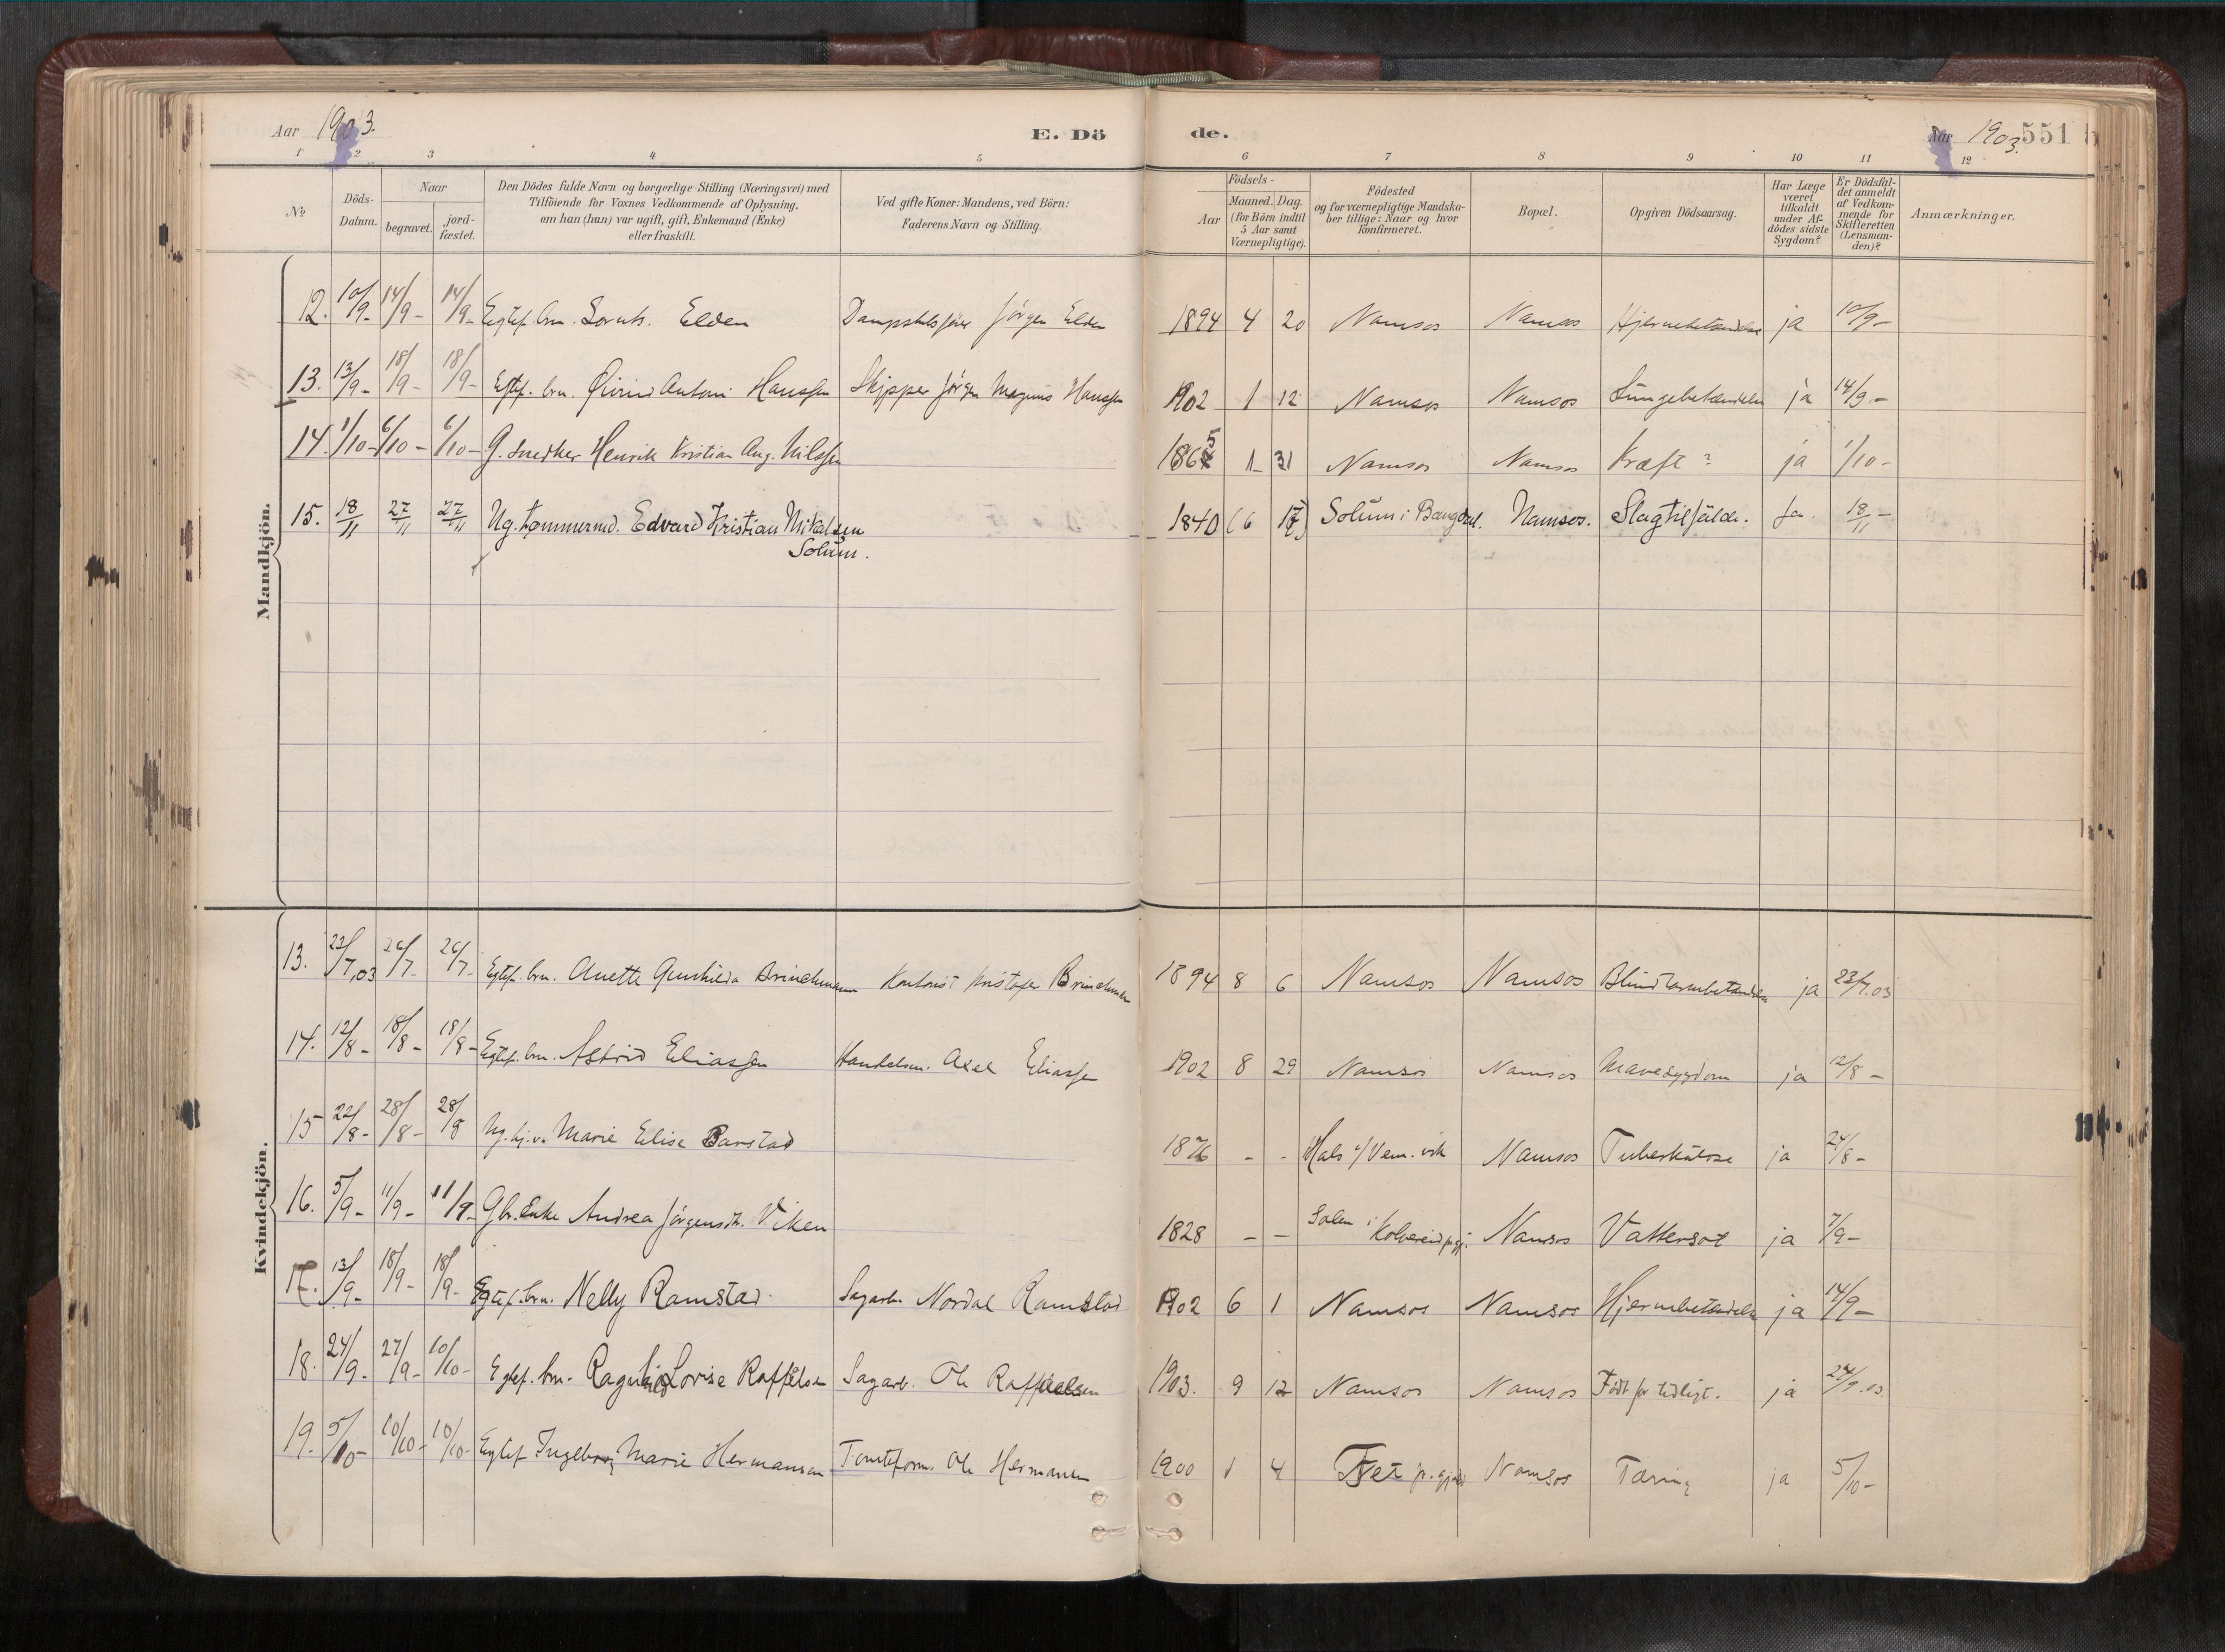 Aar 1903.
E. Dö
de.
Aar 1903.
551
1 2 3 4 5 6 7 8 9 10 11 12
No
Döds-
Datum.
Naar
begravet.
jord-
fæstet.
Den Dödes fulde Navn og borgerlige Stilling (Næringsvei) med
Tilföiende for Voxnes Vedkommende af Oplysning,
om han (hun) var ugift, gift, Enkemand (Enke)
eller fraskilt.
Ved gifte Koner: Mandens, ved Börn:
Faderens Navn og Stilling.
Födsels-
Aar
Maaned. Dag.
(for Börn indtil
5 Aar samt
Værnepligtige).
Födested
og for værnepligtige Mandska-
ber tillige: Naar og hvor
konfirmeret.
Bopæl.
Opgiven Dödsaarsag.
Har Læge
været
tilkaldt
under Af-
dödes sidste
Sygdom?
Er Dödsfal-
det anmeldt
af Vedkom-
mende for
Skifteretten
(Lensman-
den)?
Anmærkninger.
Mandkjön.
12. 10/9- 14/9- 14/9- Egtef. brn. Elden Jörgen Elden 1894 4 20 Namsos Namsos Hjernebetændelse ja 10/9-
13. 13/9- 18/9- 18/9- Egtef. brn. Öivind Antoni Hanssen Skipper Jörgen Magnus Hanssen 1902 1 12 Namsos Namsos Lungebetændelse ja 14/9-
14. 1/10- 6/10- 6/10- G. Snedker Henrik Kristian Aug. Nilssen 1865 1 31 Namsos Namsos Kræft? ja 1/10-
15. 18/11 27/11 27/11 Ug. tømmermd. Edvard Kristian Mikalsen 1840 (6 17) Solum i Bangdal. Namsos. Slagtilfælde. Ja. 18/11-
Solum.
Kvindekjön.
13. 23/7.03 26/7- 26/7- Egtef. brn. Anette Gunhilda Brinchmann Kontorist Kristofer Brinchmann 1894 8 6 Namsos Namsos Blindtarmbetændelse ja 23/7.03
14. 12/8- 18/8- 18/8- Egtef. brn. Astrid Eliassen Handelsm. Axel Eliassen 1902 8 29 Namsos Namsos Mavesygdom ja 12/8-
15 22/8- 28/8- 28/8 Ug. Marie Elise Barstad 1876 - - Hals Namsos Tuberkulose ja 24/8-
16. 5/9- 11/9- 11/9- Enke Andrea Jörgensdt. Viken 1828 - - Kolvereid prgj. Namsos Vattersot ja 7/9-
17. 13/9- 18/9- 18/9- Egtef. brn. Nelly Ramstad Sagarb. Nordal Ramstad 1902 6 1 Namsos Namsos Hjernebetændelse ja 14/9-
18. 24/9- 27/9- 10/10- Egtef. brn. Ragnhild Lovise Raffelsen Sagarb. Ole Raffaelsen 1903. 9 12 Namsos Namsos Födt for tidligt. ja 24/9.03
19. 5/10- 10/10- 10/10- Egtef. Ingeborg Marie Hermansen Tomteform. Ole Hermansen 1900 1 4 Namsos Tæring ja 5/10-